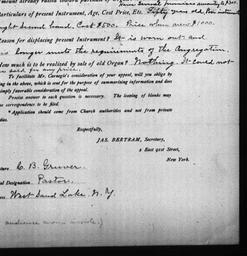 Particulars of present Instrument, Age, Cost Price, Etc. Fifty years old. Pur
bought second hand, Cost $500. Price when new $1000.
Reason for displacing present Instrument? It is worn out and
no longer meets the requirements of the Congregation.
How much is to be realized by sale of old Organ? Nothing. It could not
be sold for any price.
To facilitate Mr. Carnegie's consideration of your appeal, will you oblige by
in the above, which is end for the purpose of summarizing information and does
imply favorable consideration of the appeal.
Precise answer to each question is necessary. The leaving of blanks may
no correspondence to be filed.
*Application should come from Church authorities and not from private
Respectfully,
JAS. BERTRAM, Secretary,
2 East 91st Street,
New York.
C. B. Gruver.
Designation, Pastor.
West Sand Lake, N. Y.
audience room inside.)